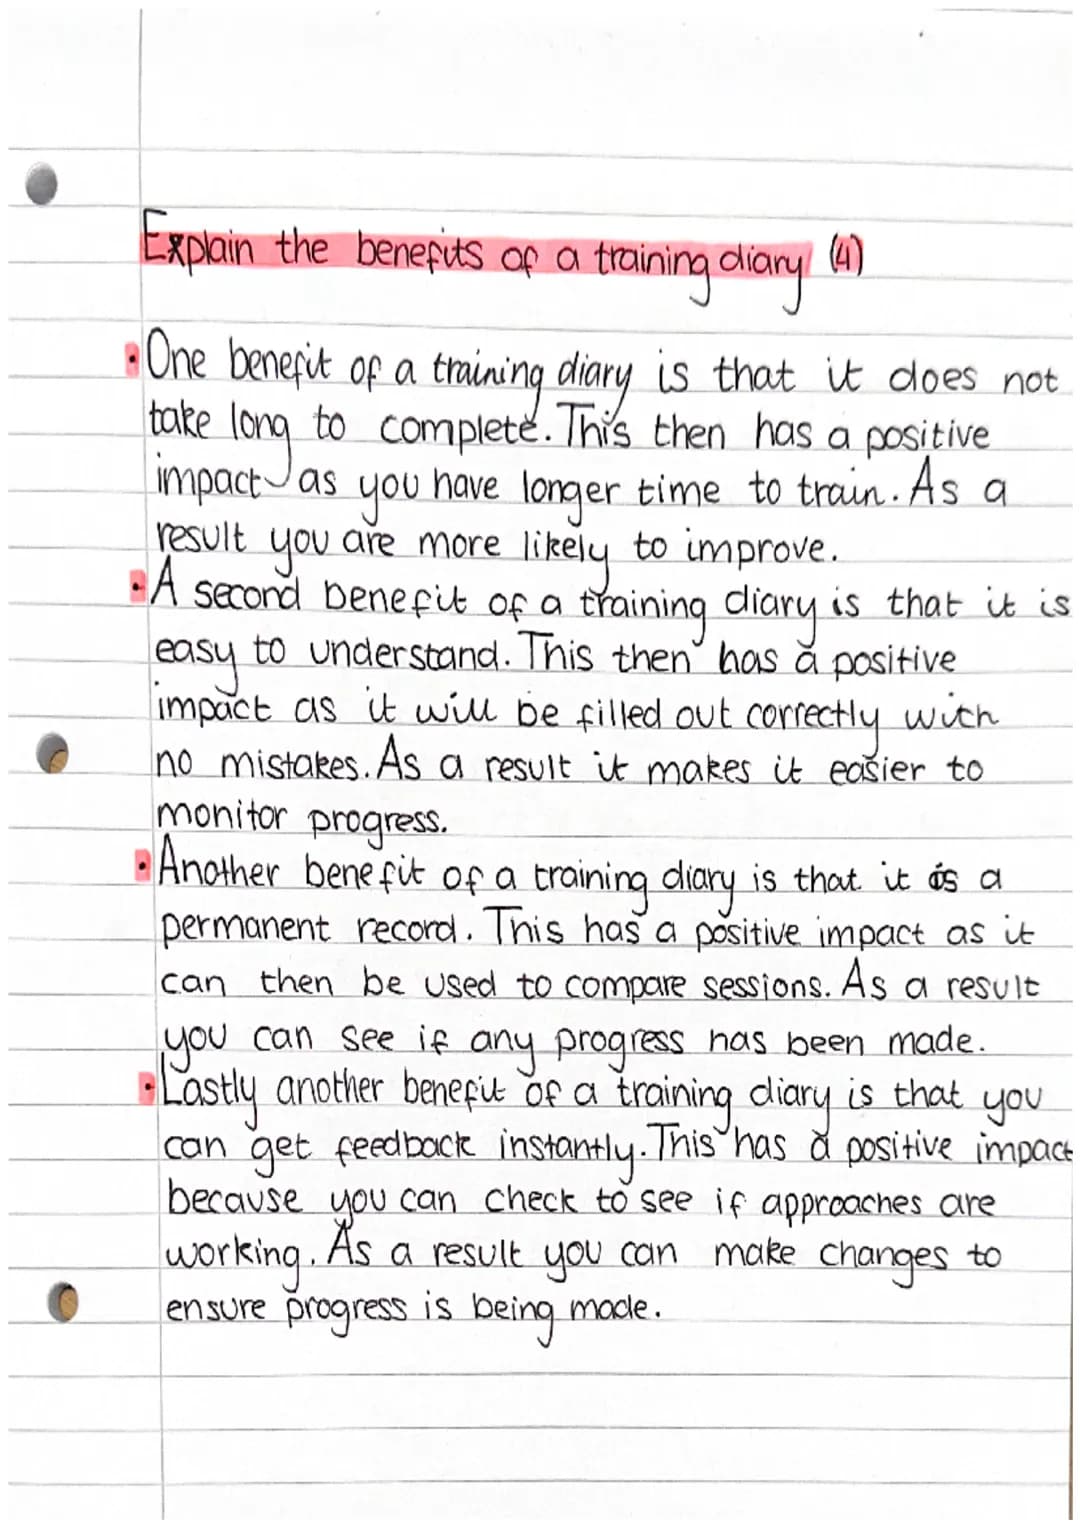 Explain the benefits of a training diary (4)
• One benefit of a training diary is that it does not
take long to complete. This then has a positive
impact as you have longer time to train. As a
result you are more likely to improve.
• A second benefit of a training diary is that it is
easy to understand. This then has a positive
impact as it will be filled out correctly with
no mistakes. As a result it makes it easier to
monitor progress.
• Another benefit of a training diary is that it is a
permanent record. This has a positive impact as it
can then be used to compare sessions. As a result
you can see if any progress has been made.
• Lastly another benefit of a training diary is that you
can get feedback instantly. This has a positive impact
because you can check to see if approaches are
working. As a result you can make changes to
ensure progress is being made.